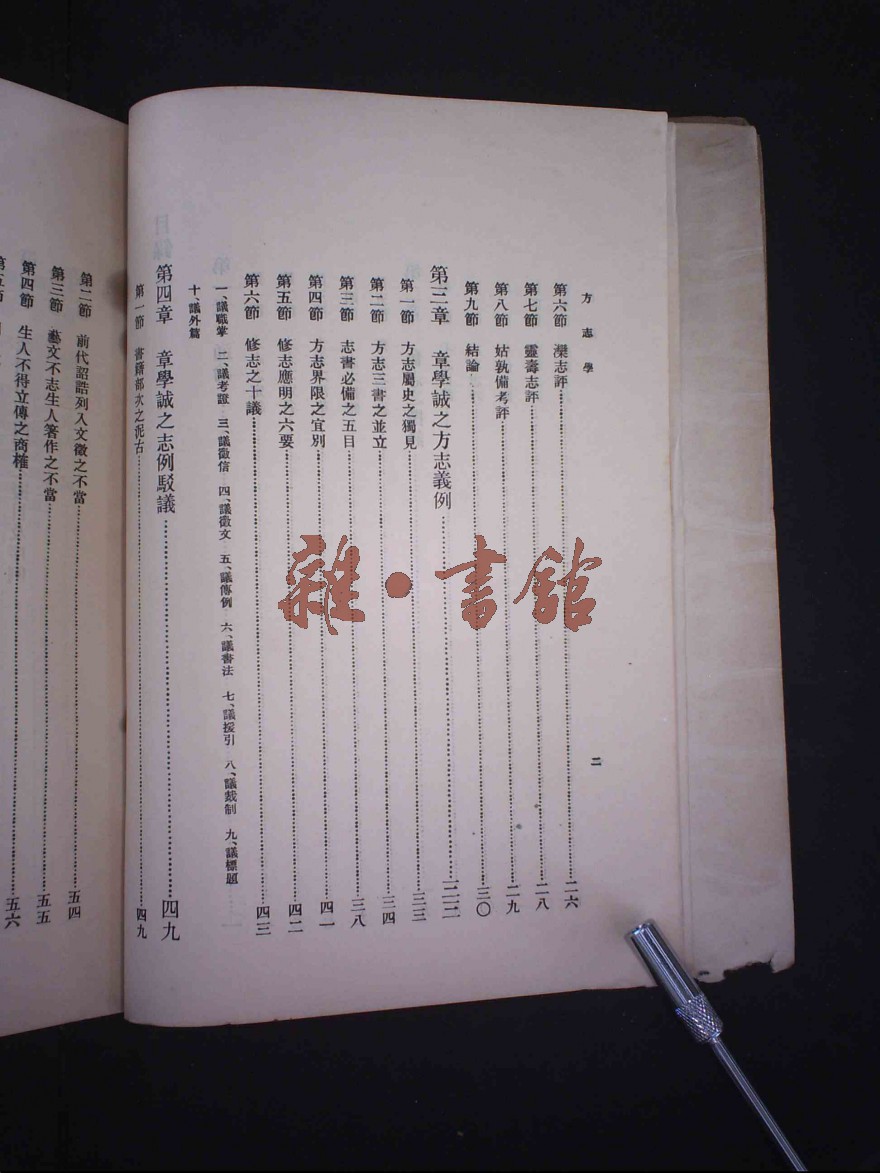 方志學
二
第六節 灤志評……二六
第七節 靈壽志評……二八
第八節 姑孰備考評……二九
第九節 結論……三〇
第三章 章學誠之方志義例……三三
第一節 方志屬史之獨見……三三
第二節 方志三書之並立……三四
第三節 志書必備之五目……三八
第四節 方志界限之宜別……四一
第五節 修志應明之六要……四二
第六節 修志之十議……四三
一、議職掌 二、議考證 三、議徵信 四、議徵文 五、議傳例 六、議書法 七、議援引 八、議裁制 九、議標題
十、議外篇
第四章 章學誠之志例駁議……四九
第一節 書籍部次之泥古……四九
第二節 前代詔誥列入文徵之不當……五四
第三節 藝文不志生人著作之不當……五五
第四節 生人不得立傳之商榷……五六
雜·書館